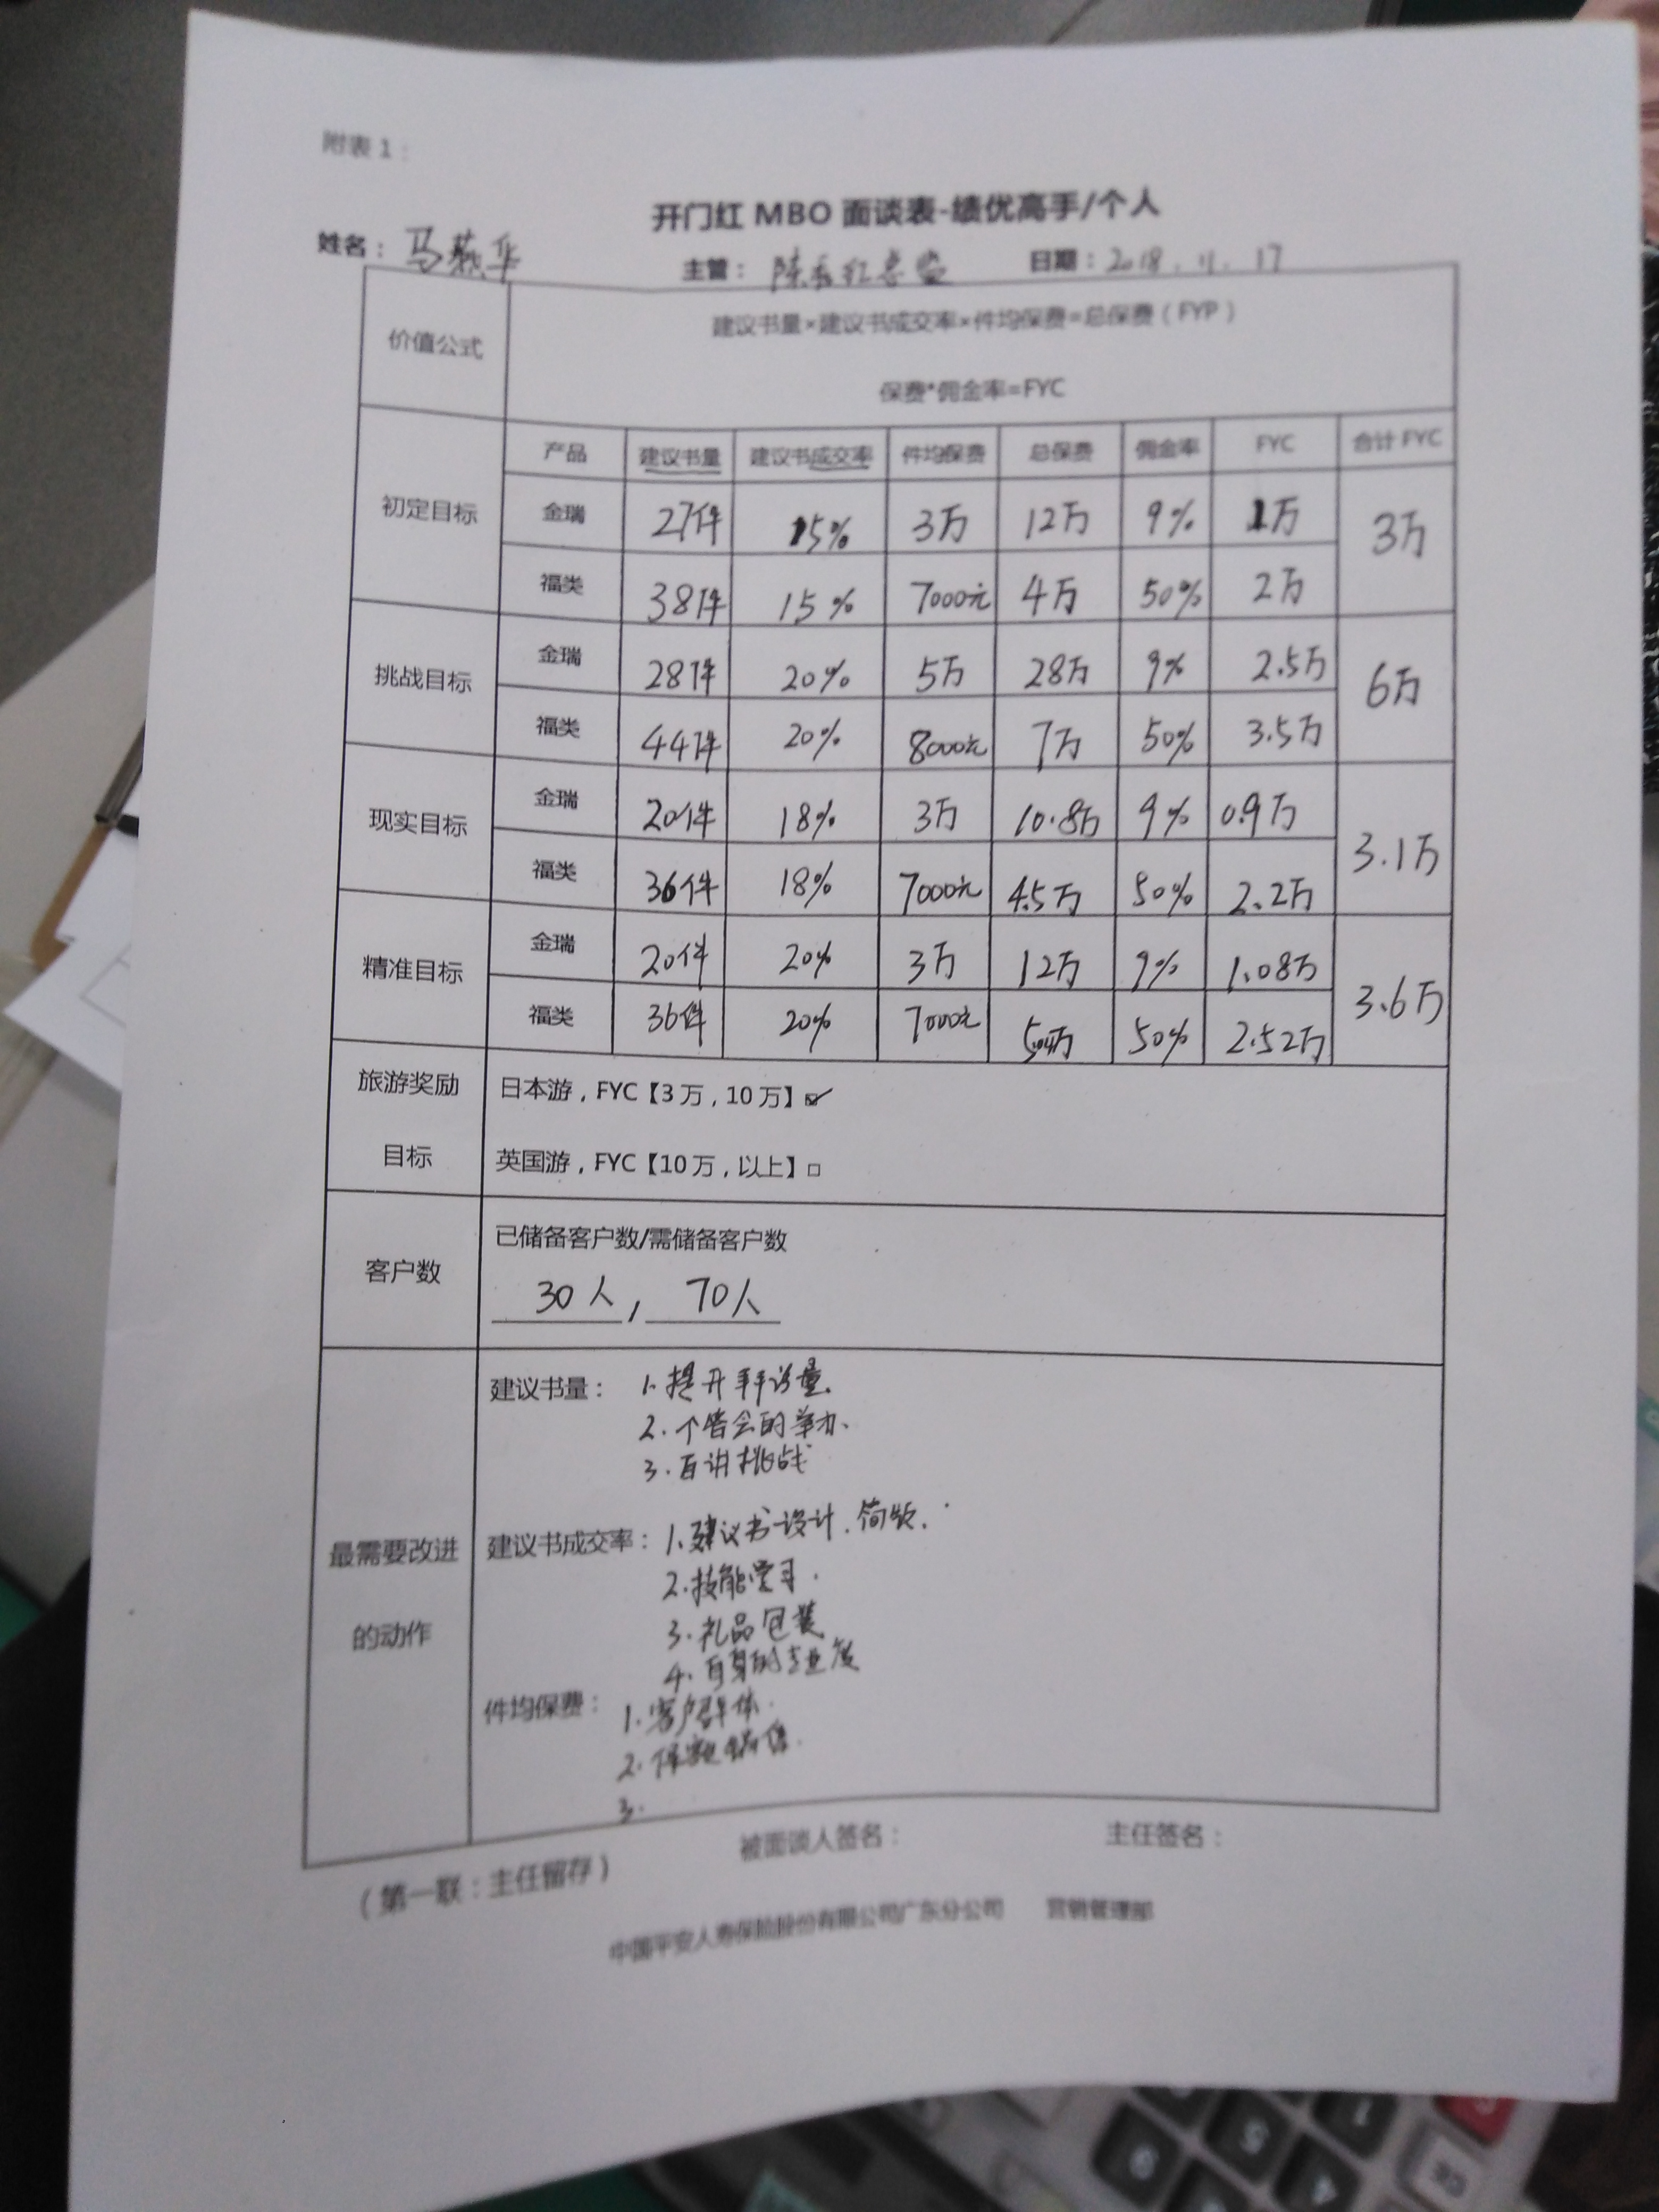 附表1:
开门红 MBO 面谈表-绩优高手/个人
姓名: 马 华 主管: 陈 红总监 日期: 2018.11.17
价值公式 建议书量×建议书成交率×件均保费=总保费(FYP)
保费*佣金率=FYC
产品 建议书量 建议书成交率 件均保费 总保费 佣金率 FYC 合计 FYC
初定目标 金瑞 27件 15% 3万 12万 9% 1万 3万
福类 38件 15% 7000元 4万 50% 2万
挑战目标 金瑞 28件 20% 5万 28万 9% 2.5万 6万
福类 44件 20% 8000元 7万 50% 3.5万
现实目标 金瑞 20件 18% 3万 10.8万 9% 0.9万 3.1万
福类 36件 18% 7000元 4.5万 50% 2.2万
精准目标 金瑞 20件 20% 3万 12万 9% 1.08万 3.6万
福类 36件 20% 7000元 5.04万 50% 2.52万
旅游奖励 日本游,FYC【3万,10万】☑
目标 英国游,FYC【10万,以上】□
客户数 已储备客户数/需储备客户数
30人, 70人
最需要改进的动作
建议书量: 1.提升拜访量.
2.个售会的举办.
3.百讲挑战
建议书成交率: 1.建议书设计.简版.
2.技能学习.
3.礼品包装
4.自身的专业度
件均保费: 1.客户群体.
2.保额销售.
3.
被面谈人签名: 主任签名:
(第一联:主任留存)
中国平安人寿保险股份有限公司广东分公司 营销管理部